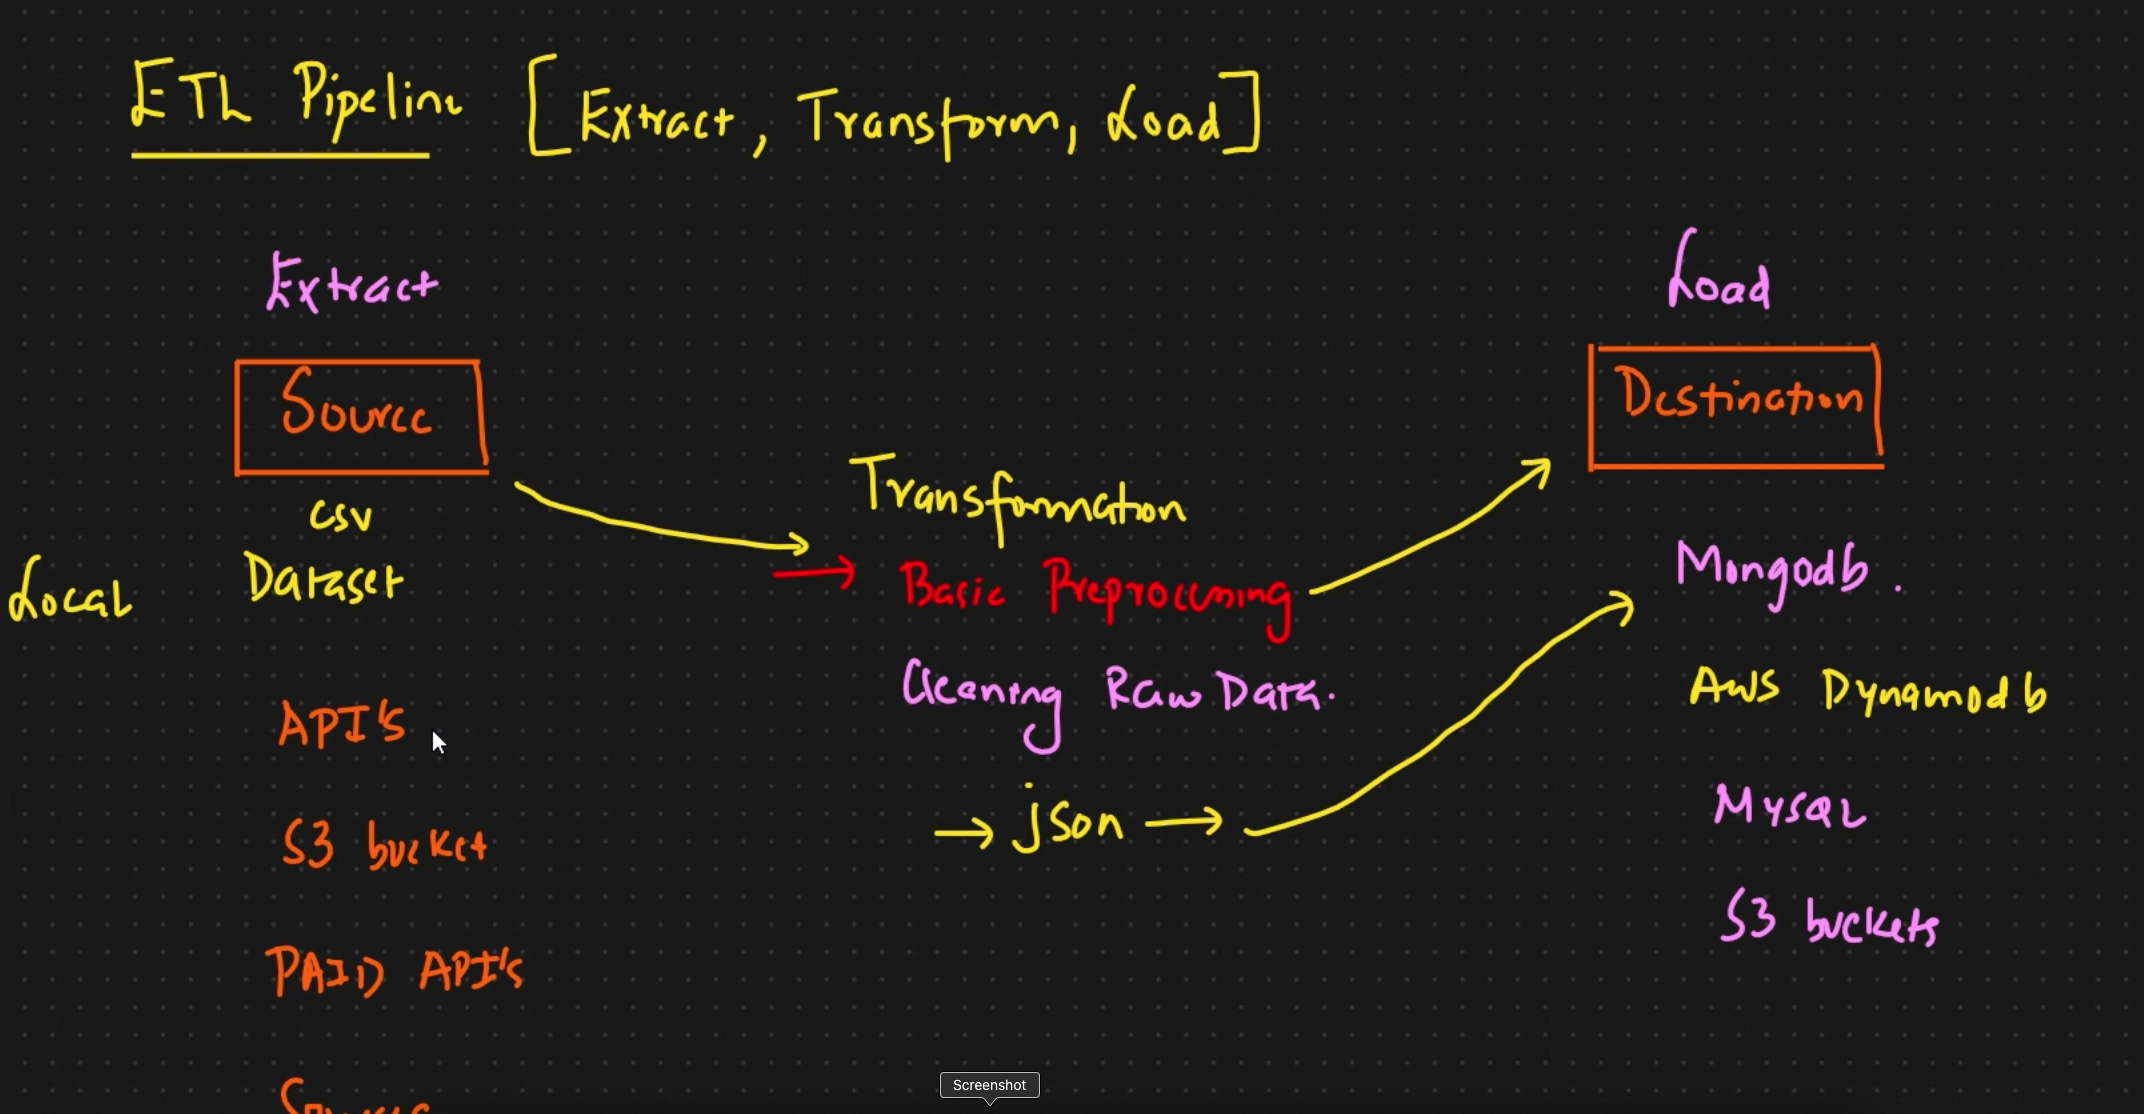 ETL Pipeline [Extract, Transform, Load]
Extract
Source
csv
Dataset
Local
API's
S3 bucket
PAID API's
Transformation
→ Basic Preprocessing
Cleaning Raw Data.
→ json →
Load
Destination
Mongodb.
AWS Dynamodb
Mysql
S3 buckets
Screenshot